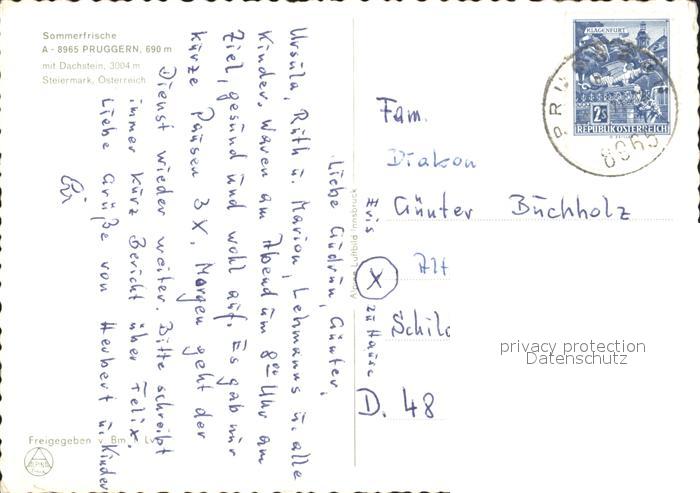 Sommerfrische
A - 8965 PRUGGERN, 690 m
mit Dachstein, 3004 m
Steiermark, Österreich
Liebe Gudrun, Günter,
Ursula, Ruth u. Marion, Lehmanns u. alle
Kinder. Waren am Abend um 8 Uhr am
Ziel, gesund und wohl auf. Es gab nur
kurze Pausen 3 X. Morgen geht der
Dienst wieder weiter. Bitte schreibt
immer kurz Bericht über Felix.
Liebe Grüße von Herbert u. Kinder
Freigegeben v. Bm. f. Lv.
Alpine Luftbild Innsbruck
KLAGENFURT
2S
REPUBLIK ÖSTERREICH
8965
Fam.
Diakon
Günter Buchholz
Alt
Schild
D. 48
X zu Hause
privacy protection
Datenschutz